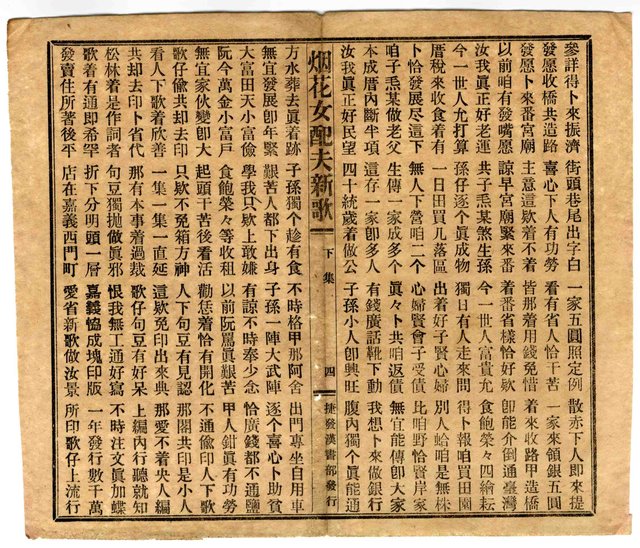 參詳得卜來振濟 街頭巷尾出字白 一家五圓照定例 散赤下人即來提
發愿收橋共造路 喜心下人有功勞 看有省人恰干苦 一家來領銀五圓
發愿卜來番宮廟 主意這欵着不着 皆那着用錢免惜 着來收路甲造橋
以前咱有發嘴愿 諒早宮廟緊來番 着番省樣恰好欵 卽能介倒通臺灣
汝我眞正好老運 共子烝某煞生孫 今一世人富貴允 食飽榮々四繪耘
今一世人允打算 孫仔逐个眞成物 獨日有人走來問 得卜報咱買田園
厝稅來收食着有 一日田買几落區 出着好子賢心婦 別人蛤咱是無株
卜恰發展尽這下 無人下營咱二个 心婦賢會子受債 比咱野恰賢岸家
咱子烝某做老父 生傳一家成多个 眞々卜共咱返債 無宜能傳卽大家
本成厝內斷半項 這存一家卽多人 有錢廣話靴下動 我想卜來做銀行
汝我眞正好民望 四十統歲着做公 子孫小人卽興旺 腹內獨个眞能通
烟花女配夫新歌 下集 四 捷發漢書部發行
方水葬去眞着跡 子孫獨个趁有食 不時格甲那阿舍 出門專坐自用車
無宜發展卽年緊 艱苦人都下出身 子孫一陣大武陣 逐个喜心卜助貧
大富田天小富儉 學我只欵上敢嫌 有諒不時奉少念 恰廣錢都不通鹽
阮今萬金小富戶 食飽榮々等收租 以前阮罵眞艱苦 甲人鉗眞有功勞
無宜家伙變卽大 起頭干苦後看活 勸恁着恰有開化 不通偷印人下歌
歌仔偷共却去印 只欵不免箱方神 人下句豆有見認 那閣共印是小人
看人下歌着欣善 一集一集一直延 這欵免印出來典 那愛不着央人編
共却去印卜省代 那有本事着過裁 歌仔句豆有好呆 上編內行聽就知
松林着是作詞者 句豆獨拋做眞邪 恨我無工通好寫 不時注文眞加蝶
歌着有通即希罕 折下分明頭一層 嘉義恊成塊印版 一年發行數千萬
發賣住所著後平 店在嘉義西門町 愛省新歌做汝景 所印歌仔上流行